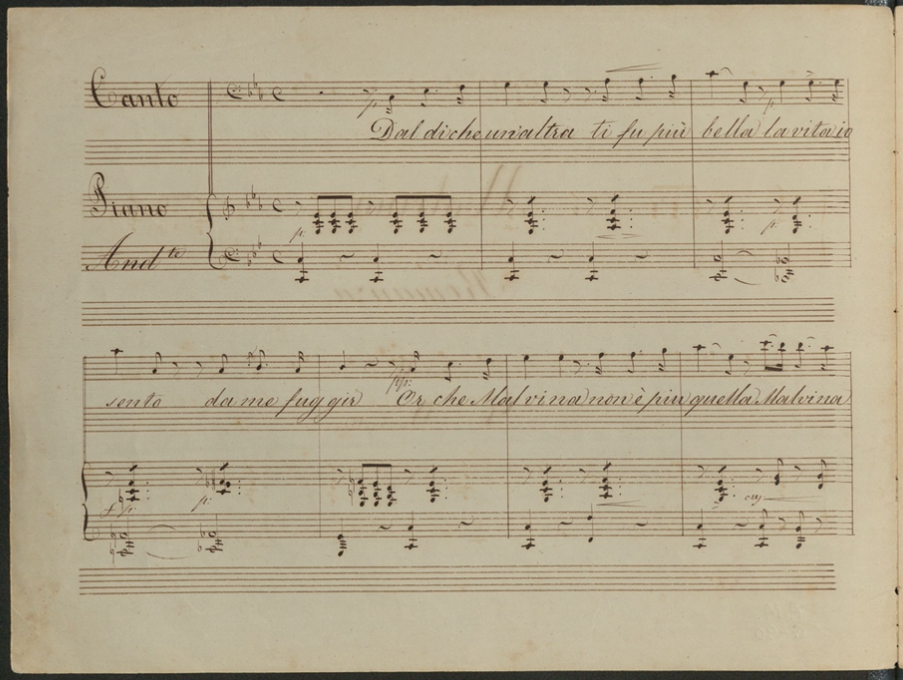 Canto
p.
Dal di che un'altra ti fu più bella la vita io
Piano
p.
p.
And.te
pp.
sento da me fuggir Or che Malvina non è più quella Malvina
p.
p.